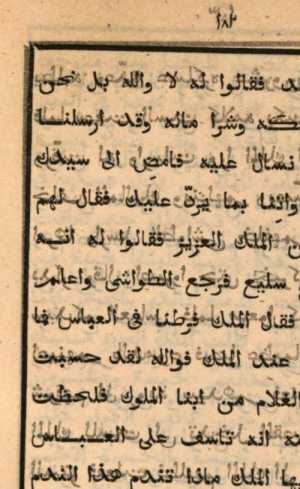 ١٨٢
فقالوا له لا والله بل نحن
وشرا ماله وقد ارسلنا
نسال عليه فامض الى سيدك
واتنا بما يردّ عليك فقال لهم
الملك العزيز فقالوا له انه
سليع فرجع الطواشى واعلم
فقال الملك فرطنا فى العباس فا
عند الملك فوالله لقد حسبت
الغلام من ابنا الملوك فلحظت
انه تاسف على العباس
الملك ماذا تقدم هذا الندم